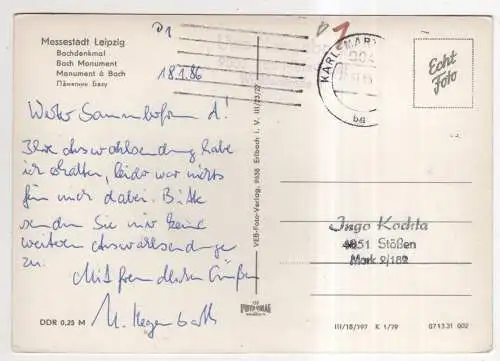 Messestadt Leipzig
Bachdenkmal
Bach Monument
Monument à Bach
Памятник Баху
D1
18.1.86
Werter Sammlerfreund!
Ihre Auswahlsendung habe
ich erhalten, leider war nichts
für mich dabei. Bitte
senden Sie mir keine
weiteren Auswahlsendungen
zu.
Mit freundlichen Grüßen
DDR 0,25 M
VEB-Foto-Verlag, 9658 Erlbach i. V. III/23/22
KARL-MARX
Echt
Foto
Ingo Kodita
4851 Stößen
Mark 2/182
III/18/197 K 1/79 07 13 31 002